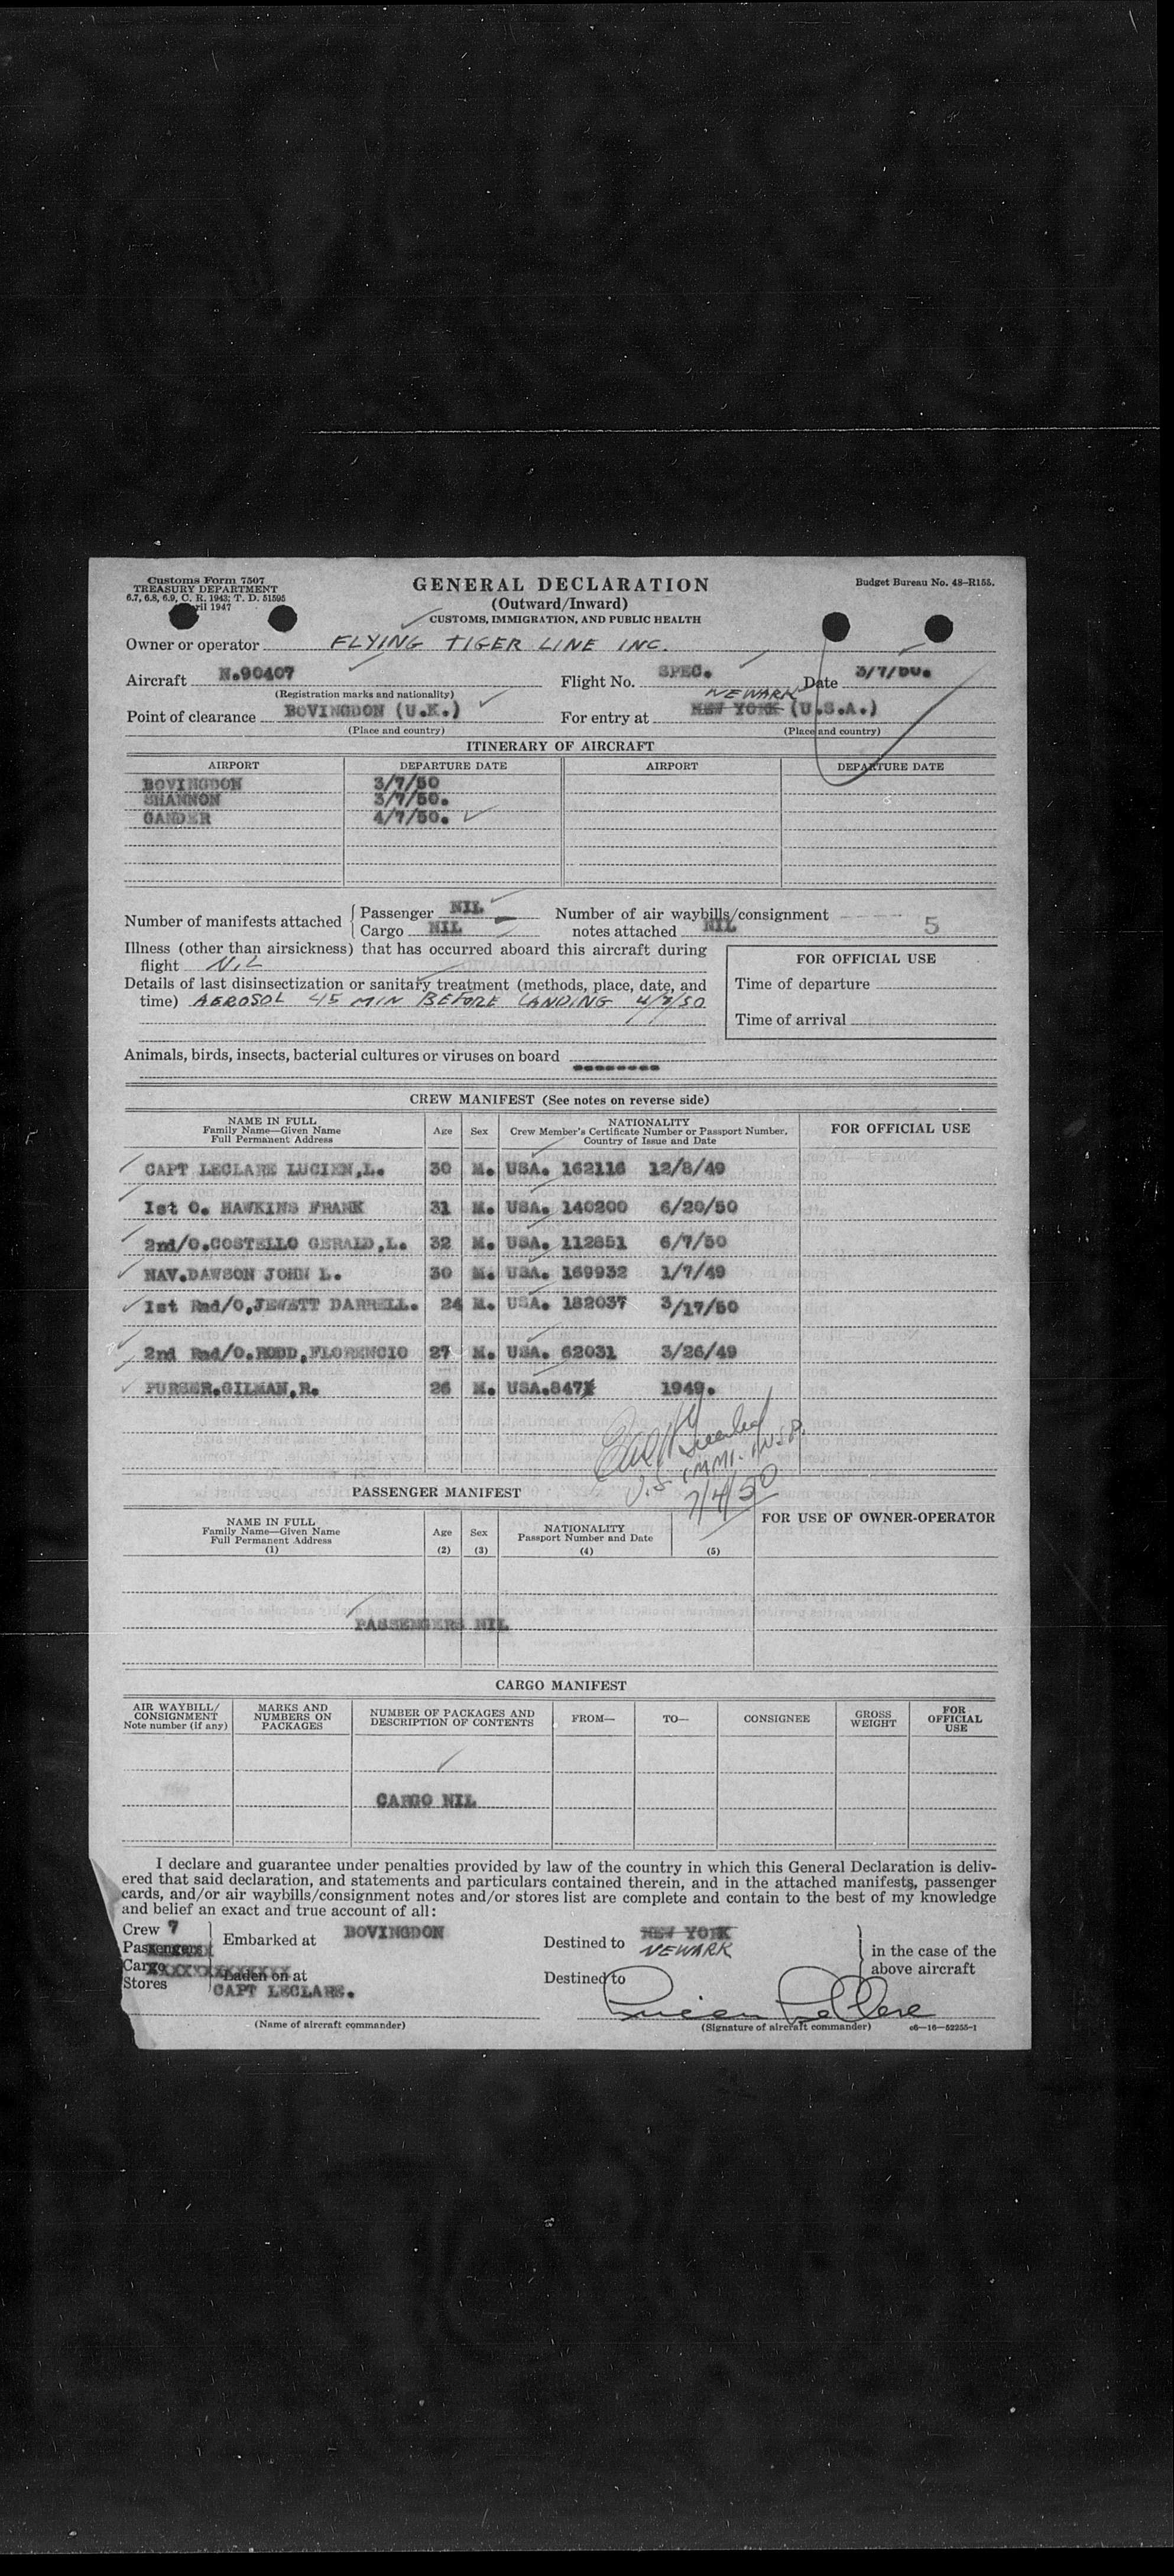 Customs Form 7507
TREASURY DEPARTMENT
6.7, 6.8, 6.9, C. R. 1943; T. D. 51595
ril 1947
GENERAL DECLARATION
(Outward/Inward)
CUSTOMS, IMMIGRATION, AND PUBLIC HEALTH
Budget Bureau No. 48-R158.
Owner or operator FLYING TIGER LINE INC.
Aircraft N.90407 Flight No. SPEC. Date 3/7/50.
(Registration marks and nationality)
NEWARK
Point of clearance BOVINGDON (U.K.) For entry at NEW YORK (U.S.A.)
(Place and country) (Place and country)
ITINERARY OF AIRCRAFT
AIRPORT DEPARTURE DATE AIRPORT DEPARTURE DATE
BOVINGDON 3/7/50
SHANNON 3/7/50.
GANDER 4/7/50.
Number of manifests attached Passenger NIL
Cargo NIL
Number of air waybills/consignment
notes attached NIL
5
Illness (other than airsickness) that has occurred aboard this aircraft during
flight NIL
Details of last disinsectization or sanitary treatment (methods, place, date, and
time) AEROSOL 45 MIN BEFORE LANDING 4/7/50
FOR OFFICIAL USE
Time of departure
Time of arrival
Animals, birds, insects, bacterial cultures or viruses on board
CREW MANIFEST (See notes on reverse side)
NAME IN FULL
Family Name—Given Name
Full Permanent Address
Age
Sex
NATIONALITY
Crew Member's Certificate Number or Passport Number,
Country of Issue and Date
FOR OFFICIAL USE
CAPT LECLARE LUCIEN,L. 30 M. USA. 162116 12/8/49
1st O. HAWKINS FRANK 31 M. USA. 140200 6/20/50
2nd/O.COSTELLO GERALD,L. 32 M. USA. 112851 6/7/50
NAV.DAWSON JOHN L. 30 M. USA. 169932 1/7/49
1st Rad/O,JEWETT DARRELL. 24 M. USA. 182037 3/17/50
2nd Rad/O.RODD,FLORENCIO 27 M. USA. 62031 3/26/49
PURSER.GILMAN,R. 26 M. USA.847 1949.
U.S. IMMI. INSP.
7/4/50
PASSENGER MANIFEST
NAME IN FULL
Family Name—Given Name
Full Permanent Address
(1)
Age
(2)
Sex
(3)
NATIONALITY
Passport Number and Date
(4)
(5)
FOR USE OF OWNER-OPERATOR
PASSENGERS NIL
CARGO MANIFEST
AIR WAYBILL/
CONSIGNMENT
Note number (if any)
MARKS AND
NUMBERS ON
PACKAGES
NUMBER OF PACKAGES AND
DESCRIPTION OF CONTENTS
FROM—
TO—
CONSIGNEE
GROSS
WEIGHT
FOR
OFFICIAL
USE
CARGO NIL
I declare and guarantee under penalties provided by law of the country in which this General Declaration is deliv-
ered that said declaration, and statements and particulars contained therein, and in the attached manifests, passenger
cards, and/or air waybills/consignment notes and/or stores list are complete and contain to the best of my knowledge
and belief an exact and true account of all:
Crew 7
Passengers
Cargo
Stores
Embarked at BOVINGDON
Laden on at
Destined to NEW YORK
NEWARK
Destined to
in the case of the
above aircraft
CAPT LECLARE.
Lucien LeClare
(Name of aircraft commander)
(Signature of aircraft commander)
c6—16—52255-1